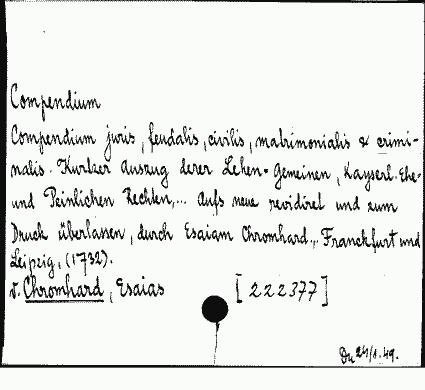 Compendium
Compendium juris, feudalis, civilis, matrimonialis & crimi-
nalis. Kurtzer Auszug derer Lehen- Gemeinen, Kayserl. Ehe-
und Peinlichen Rechten,... Aufs neue revidiret und zum
Druck überlassen, durch Esaiam Chromhard... Franckfurt und
Leipzig, (1732).
v. Chromhard, Esaias [222377]
Du 24/1.49.